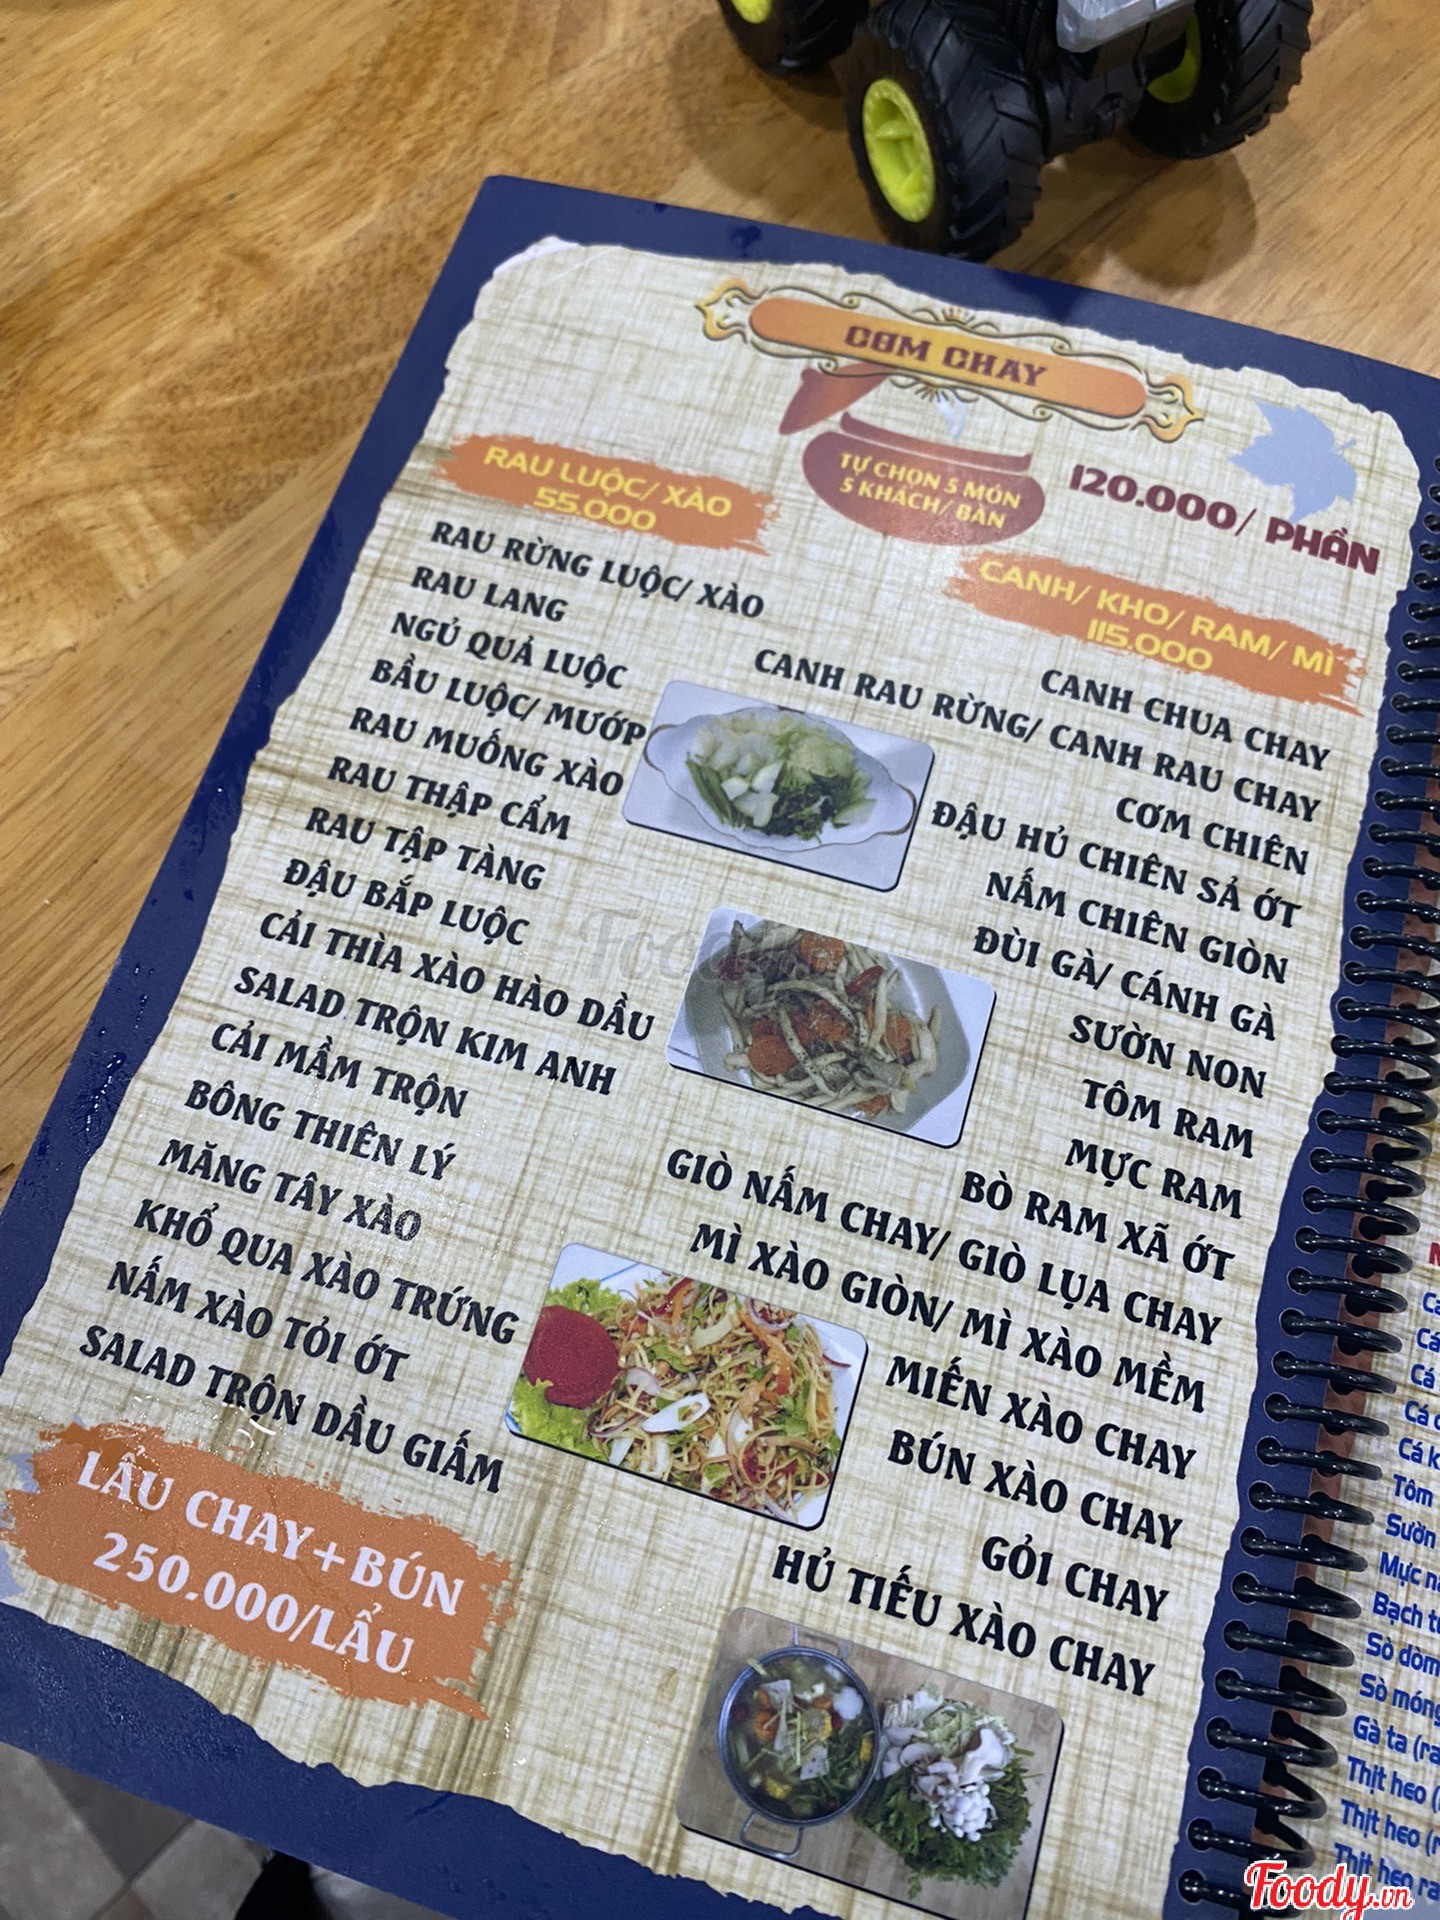 CƠM CHAY
TỰ CHỌN 5 MÓN
5 KHÁCH/ BÀN
120.000/ PHẦN
RAU LUỘC/ XÀO
55.000
RAU RỪNG LUỘC/ XÀO
RAU LANG
NGỦ QUẢ LUỘC
BẦU LUỘC/ MƯỚP
RAU MUỐNG XÀO
RAU THẬP CẨM
RAU TẬP TÀNG
ĐẬU BẮP LUỘC
CẢI THÌA XÀO HÀO DẦU
SALAD TRỘN KIM ANH
CẢI MẦM TRỘN
BÔNG THIÊN LÝ
MĂNG TÂY XÀO
KHỔ QUA XÀO TRỨNG
NẤM XÀO TỎI ỚT
SALAD TRỘN DẦU GIẤM
LẨU CHAY+BÚN
250.000/LẨU
CANH/ KHO/ RAM/ MÌ
115.000
CANH CHUA CHAY
CANH RAU RỪNG/ CANH RAU CHAY
CƠM CHIÊN
ĐẬU HỦ CHIÊN SẢ ỚT
NẤM CHIÊN GIÒN
ĐÙI GÀ/ CÁNH GÀ
SƯỜN NON
TÔM RAM
MỰC RAM
BÒ RAM XÃ ỚT
GIÒ NẤM CHAY/ GIÒ LỤA CHAY
MÌ XÀO GIÒN/ MÌ XÀO MỀM
MIẾN XÀO CHAY
BÚN XÀO CHAY
GỎI CHAY
HỦ TIẾU XÀO CHAY
Cá
Cá
Cá
Cá k
Tôm
Sườn
Mực n
Bạch t
Sò dòm
Sò móng
Gà ta (ra
Thịt heo (
Thịt heo (r
Thịt heo ra
Foody
Foody.vn